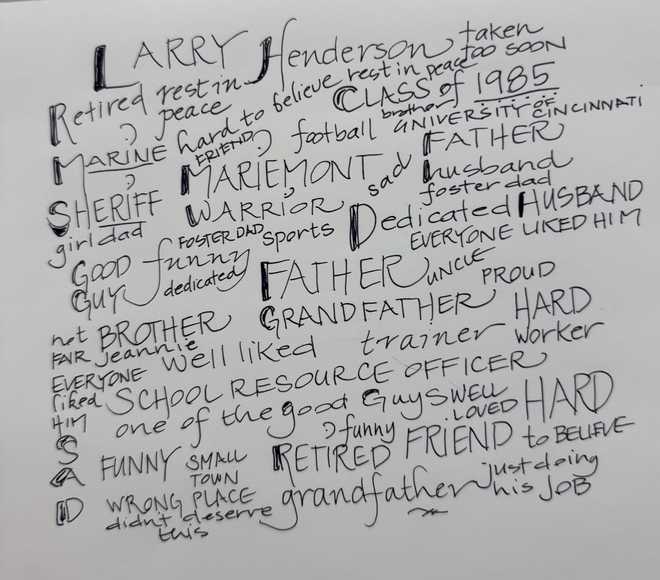 LARRY Henderson taken
Retired rest in peace hard to believe rest in peace TOO SOON
CLASS of 1985
MARINE FRIEND football brother UNIVERSITY OF CINCINNATI
SHERIFF MARIEMONT sad FATHER
husband
girl dad WARRIOR foster dad
GOOD GUY funny FOSTER DAD sports Dedicated HUSBAND
dedicated EVERYONE LIKED HIM
FATHER UNCLE PROUD
not FAIR BROTHER GRANDFATHER HARD worker
jeannie well liked trainer
EVERYONE liked HIM SCHOOL RESOURCE OFFICER
one of the good GuyS WELL LOVED HARD to BELIEVE
funny
SAD FUNNY SMALL TOWN RETIRED FRIEND
WRONG PLACE grandfather just doing his JOB
didnt deserve this